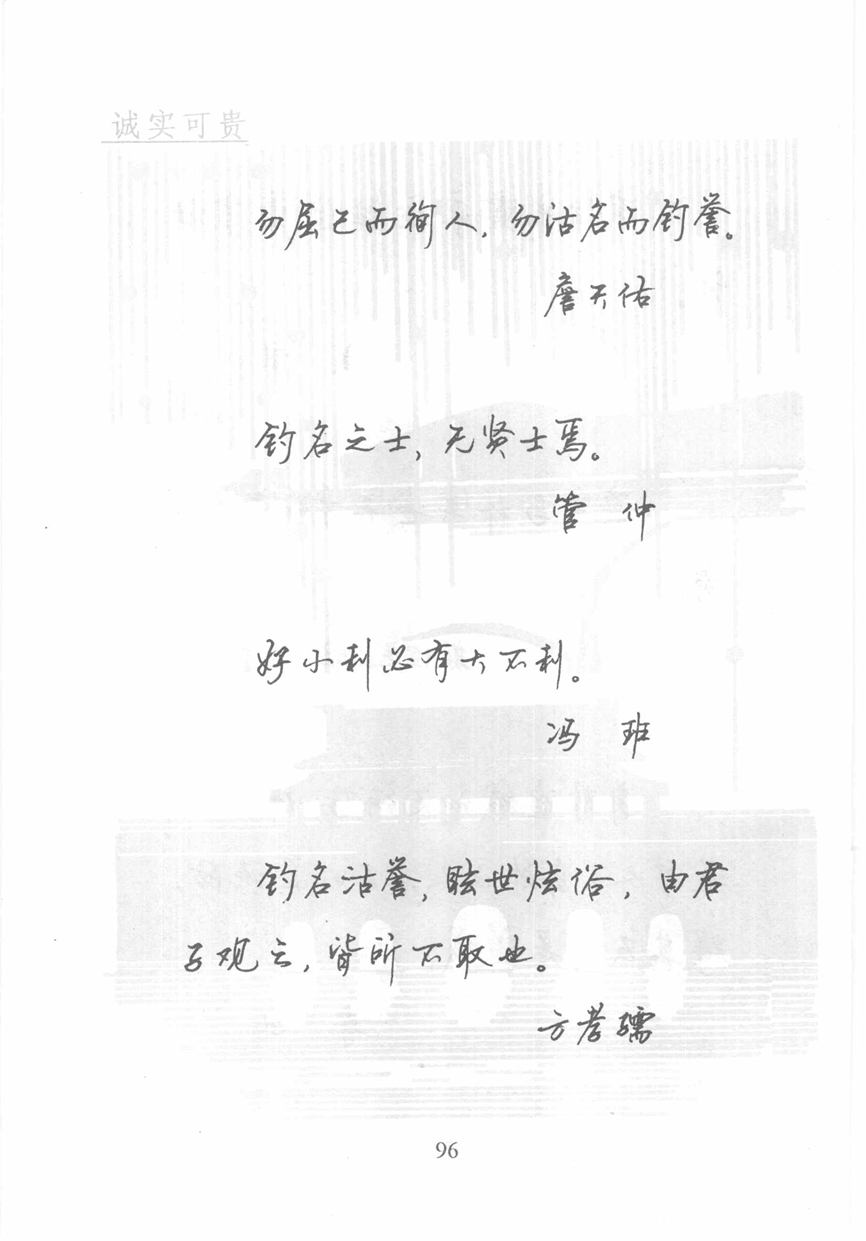 诚实可贵
勿屈己而徇人，勿沽名而钓誉。
詹天佑
钓名之士，无贤士焉。
管 仲
好小利必有大不利。
冯 班
钓名沽誉，眩世炫俗，由君
子观之，皆所不取也。
方孝孺
96